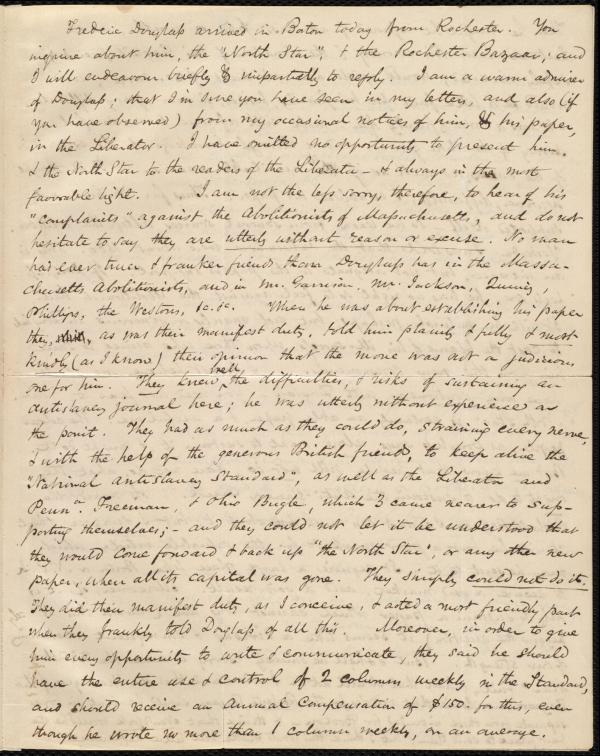 Frederic Douglass arrived in Boston today from Rochester. You
inquire about him, the "North Star", & the Rochester Bazaar; and
I will endeavour briefly & impartially to reply. I am a warm admirer
of Douglass; that I'm sure you have seen in my letters, and also (if
you have observed) from my occasional notices of him, & his paper,
in the Liberator. I have omitted no opportunity to present him,
& the North Star to the readers of the Liberator – & always in the most
favorable light. I am not the less sorry, therefore, to hear of his
"complaints" against the Abolitionists of Massachusetts, and do not
hesitate to say they are utterly without reason or excuse. No man
has ever truer & franker friends than Douglass has in the Massa-
chusetts Abolitionists, and in Mr. Garrison, Mr. Jackson, Quincy,
Phillips, the Westons, &c. &c. When he was about establishing his paper
they, as was their manifest duty, told him plainly & fully & most
kindly (as I know) their opinion that the move was not a judicious
one for him. They knew well the difficulties, & risks of sustaining an
antislavery journal here; he was utterly without experience as
the point. They had as much as they could do, straining every nerve,
& with the help of the generous British friends, to keep alive the
"National Antislavery Standard", as well as the Liberator and
Penna. Freeman, & Ohio Bugle, which 3 came nearer to sup-
porting themselves; – and they could not let it be understood that
they would come forward & back up "the North Star", or any other new
paper, when all its capital was gone. They simply could not do it.
They did their manifest duty, as I conceive, & acted a most friendly part
when they frankly told Douglass of all this. Moreover, in order to give
him every opportunity to write & communicate, they said he should
have the entire use & control of 2 columns weekly in the Standard,
and should receive an annual compensation of $150. for this, even
though he wrote no more than 1 column weekly, on an average.